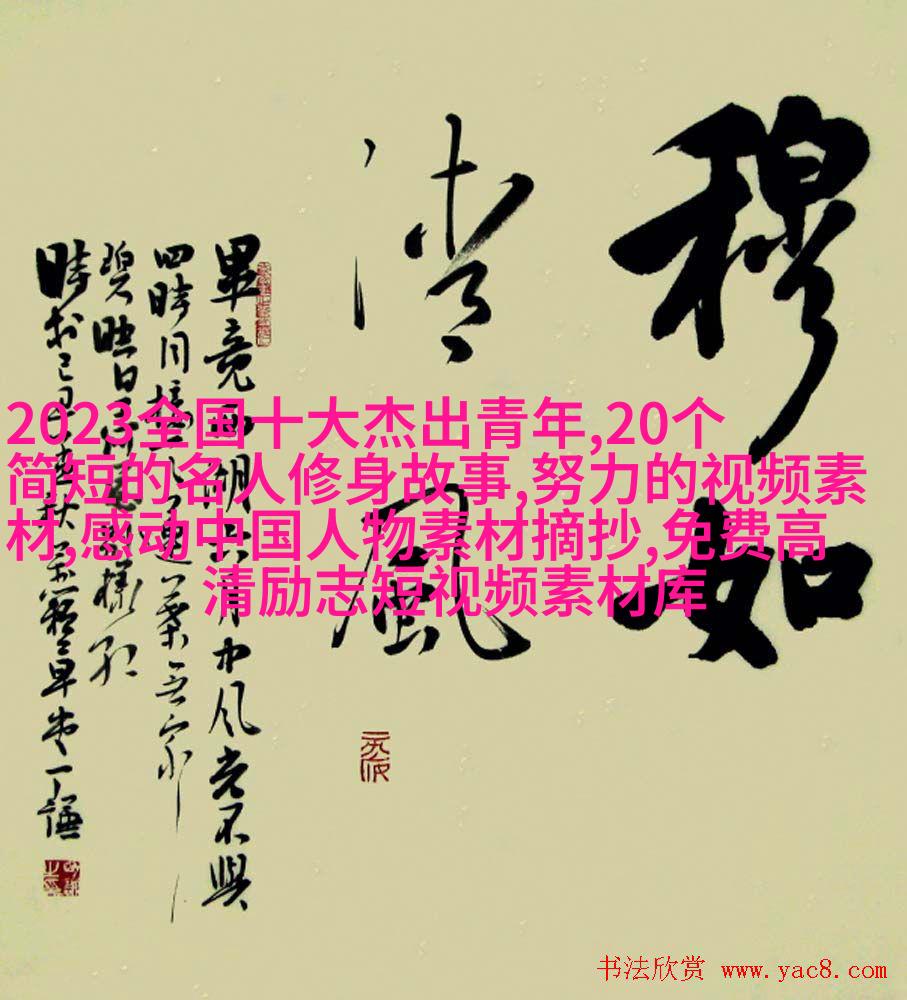 穆如
清風
畢竟西湖六月中风光不與
四時同接天蓮葉无穷
碧映日荷花別樣紅
2023全国十大杰出青年,20个
简短的名人修身故事,努力的视频素
材,感动中国人物素材摘抄,免费高
清励志短视频素材库
书法欣赏 www.yac8.com